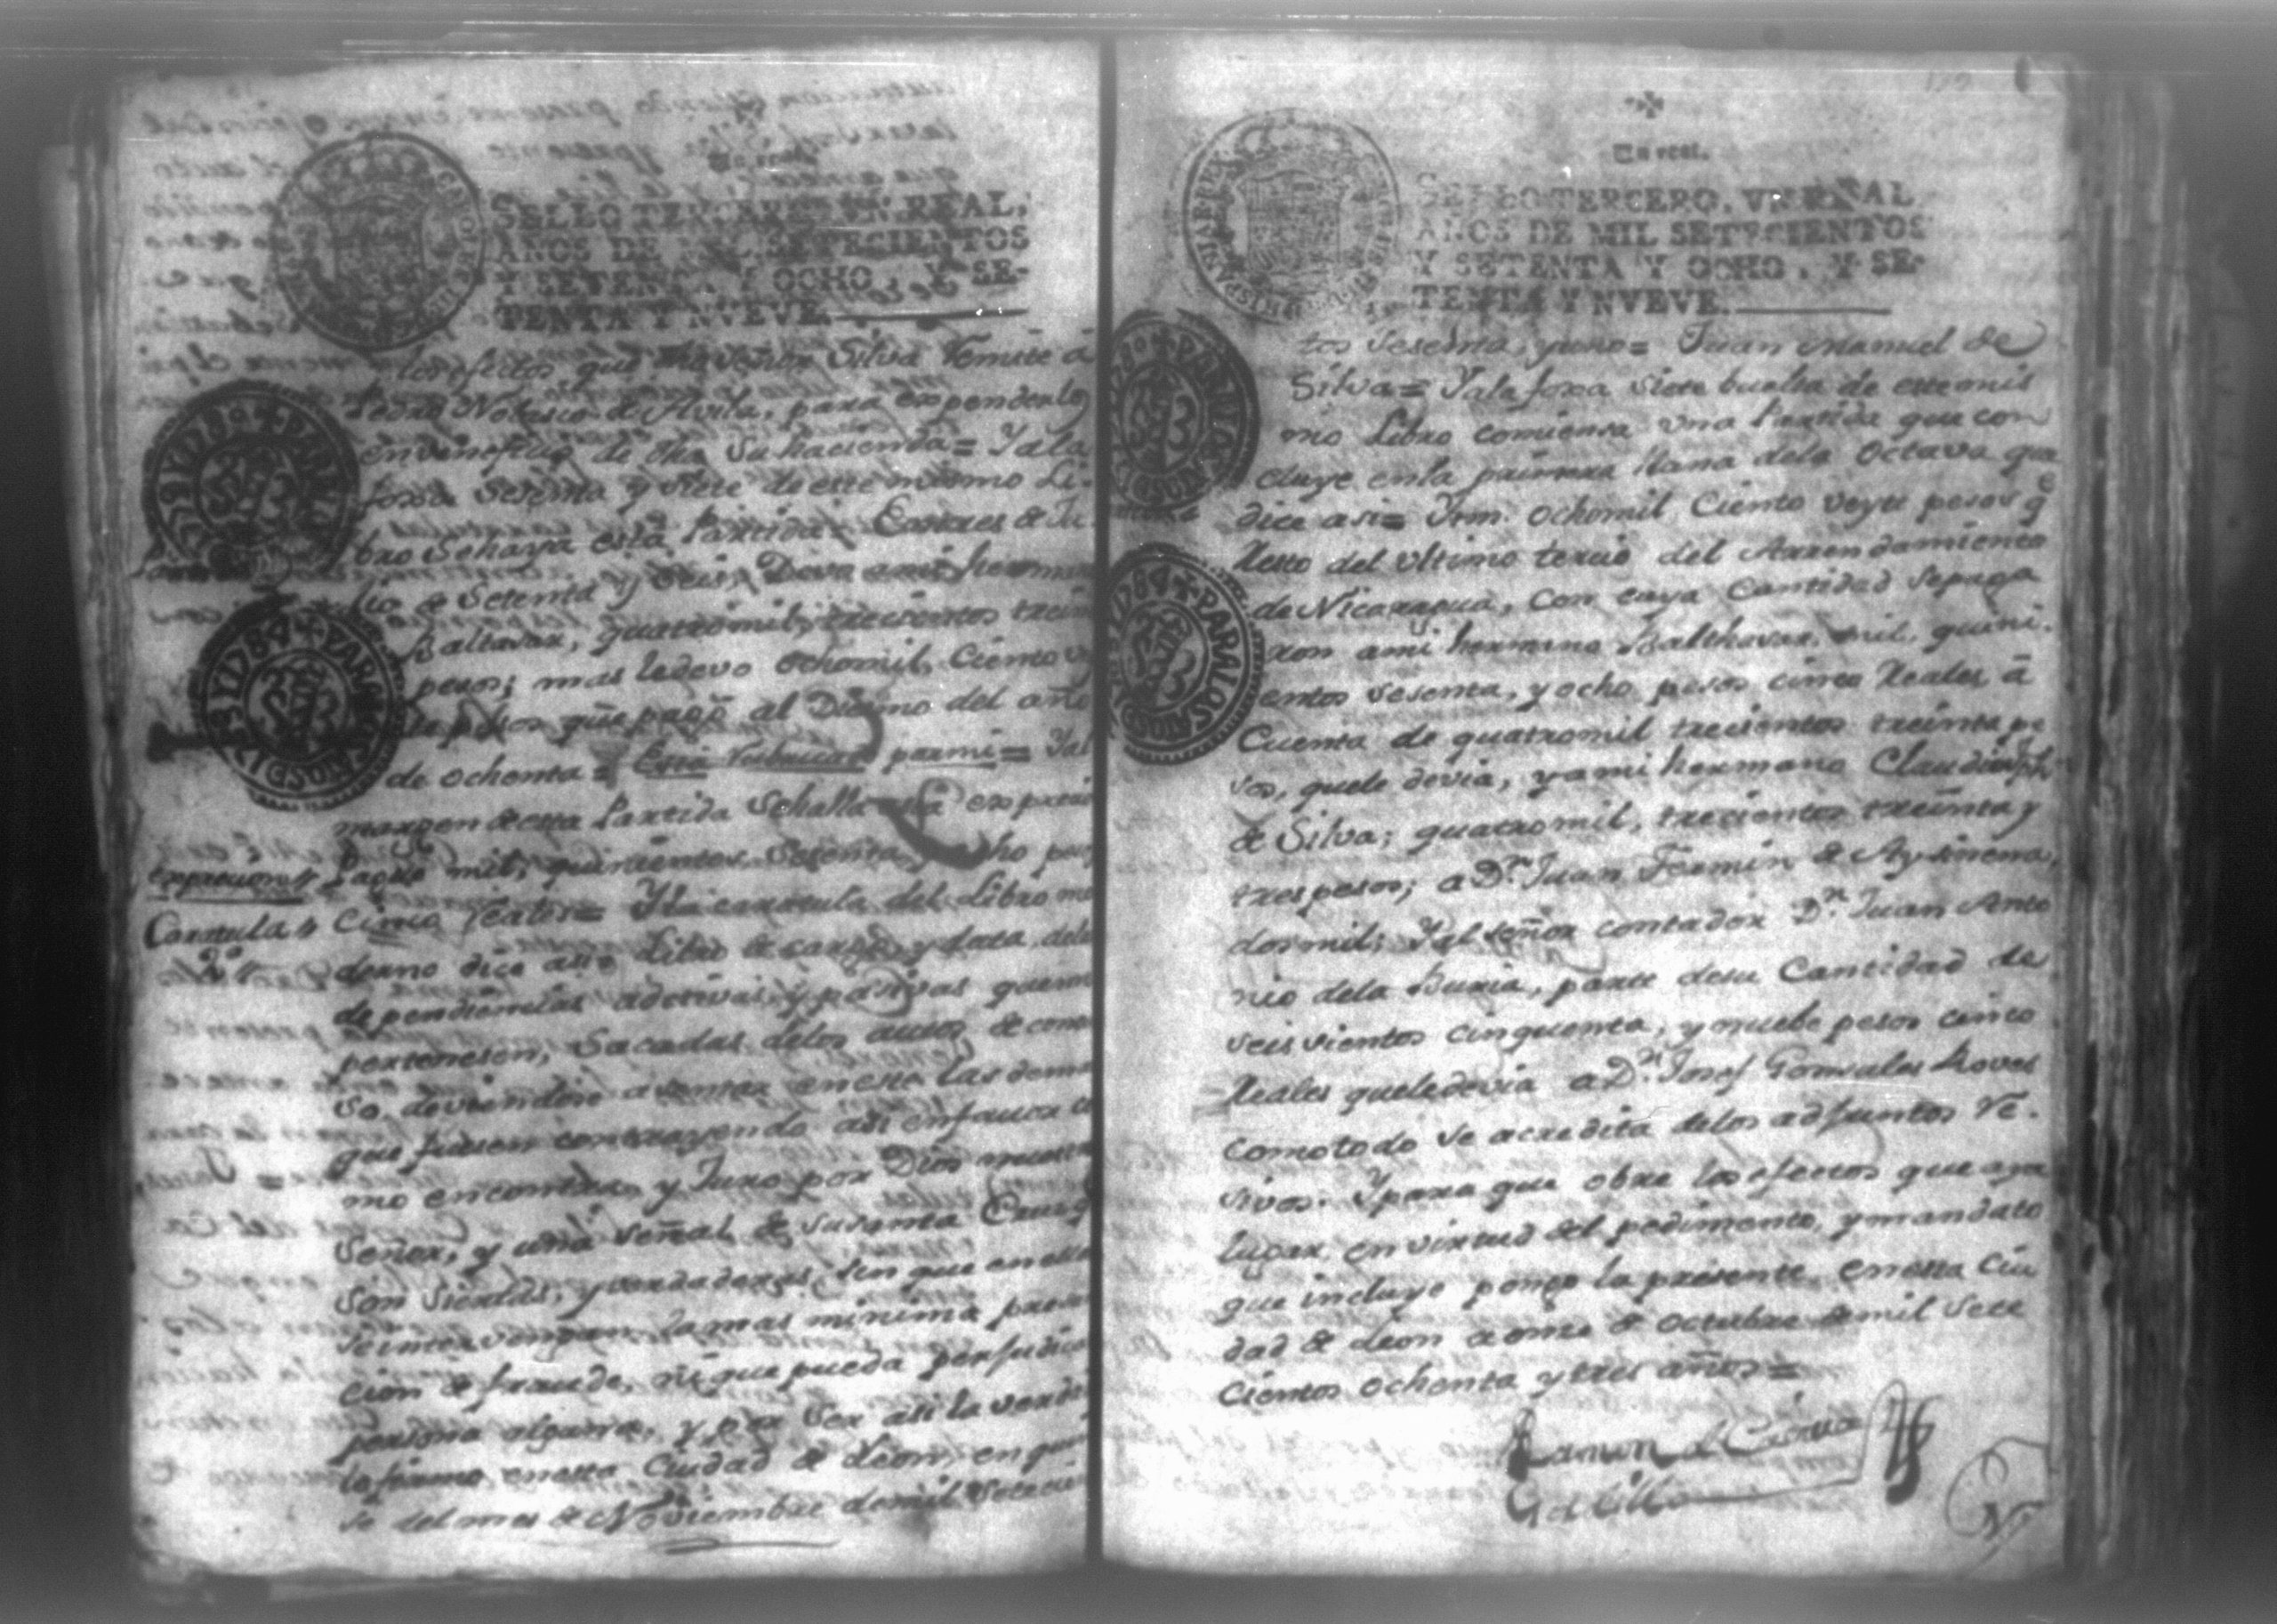 Un real.
SELLO TERCERO, VN REAL,
AÑOS DE MIL SETECIENTOS
Y SETENTA Y OCHO, Y SE-
TENTA Y NVEVE.
los efectos que Silva Remite á
Pedro Nolasco de Avila, para expenderlos
en veneficio de dha su hacienda = Y ala
foxa Sesenta y siete de este mismo Li-
bro se haya esta Partida = Enttres de Ju-
lio de Setenta y seis, Devo ami herma
Baltasar, quatromil, trecientos trein
pesos; mas le devo ochomil, Ciento v
te pesos q̃ue pagó al Diesmo del año
de ochenta = Esta Rubricada par mi = Y al
margen de esta Partida se halla una expreci
Expreciones Pagué mil, quinientos Sesenta, y ocho pes
Caratula cinco reales = Y la caratula del Libro mo
2ª derno dice asi = Libro de cargo, y data, dela
dependiencias activas, y pasivas que me
pertenesen, Sacadas delos autos de conc
so, deviendose asentar en este las dema
que fuesen contrayendo asi enfavor co
mo encontra, y Juro por Dios nuestro
Señor, y una señal de Susanta Cruz q
son siertas, y verdaderas, sin que en ella
se intervengan la mas minima preci
cion de fraude, ni que pueda perjudica
persona alguna, y por ser asi la verda
lo firmo enesta Ciudad de Leon, en quin
se del mes de Noviembre demil setecien
Un real.
SELLO TERCERO, VN REAL,
AÑOS DE MIL SETECIENTOS
Y SETENTA Y OCHO, Y SE-
TENTA Y NVEVE.
tos sesenta, y uno = Juan Manuel de
Silva = Y ala foxa siete buelta de este mis
mo Libro comiensa una Partida que con
cluye en la primera llana dela Octava que
dice asi = Ytm. ochomil Ciento veyte pesos q̃
Resto del ultimo tercio del Arrendamiento
de Nicaragua, con cuya Cantidad se paga
ron ami hermano Balthasar. mil, quini-
entos sesenta, y ocho pesos cinco Reales á
Cuenta de quatromil trecientos treinta pe
sos, quele devia, y ami hermano Claudio
de Silva; quatromil, trecientos treinta y
tres pesos; a Dn. Juan Fermin de Aysinena,
dosmil; Y al señor contador Dn. Juan Anto
nio dela Buria, parte desu Cantidad de
seisvientos cinquenta, y nuebe pesos cinco
Reales quele devia a Dn. Josef Gonsales Roves
como todo se acredita delos adjuntos Re-
sivos. Y para que obre los efectos que aya
lugar en virtud del pedimento, y mandato
que incluye pongo la presente enesta Ciu
dad de Leon a onse de octubre de mil sete
cientos ochenta y tres años =
Ramon de